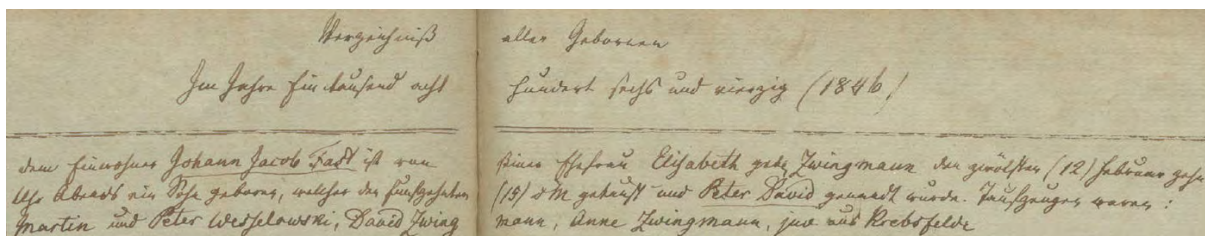 Verzeichniß aller Gebornen
Im Jahre Ein tausend acht hundert sechs und vierzig (1846)
dem Einwohner Johann Jacob Fast ist von seiner Ehefrau Elisabeth geb. Zwingmann den zwölften (12) Februar zehn
Uhr Abends ein Sohn geboren, welcher den funfzehnten (15) d M getauft und Peter David genannt wurde. Taufzeugen waren:
Martin und Peter Wesselowski, David Zwing mann, Anne Zwingmann, aus Krebsfelde